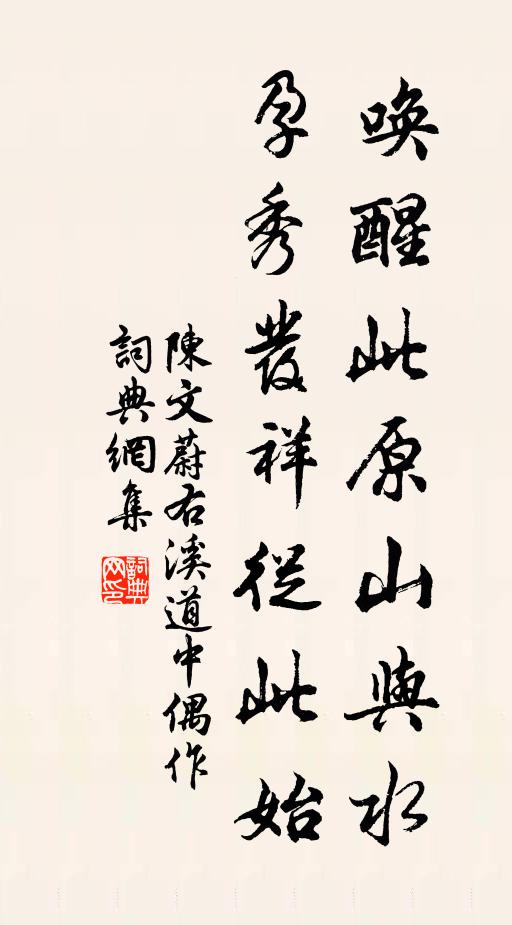 喚醒此原山與水
孕秀發祥從此始
陳文蔚右溪道中偶作
詞典網集
詞典
网印